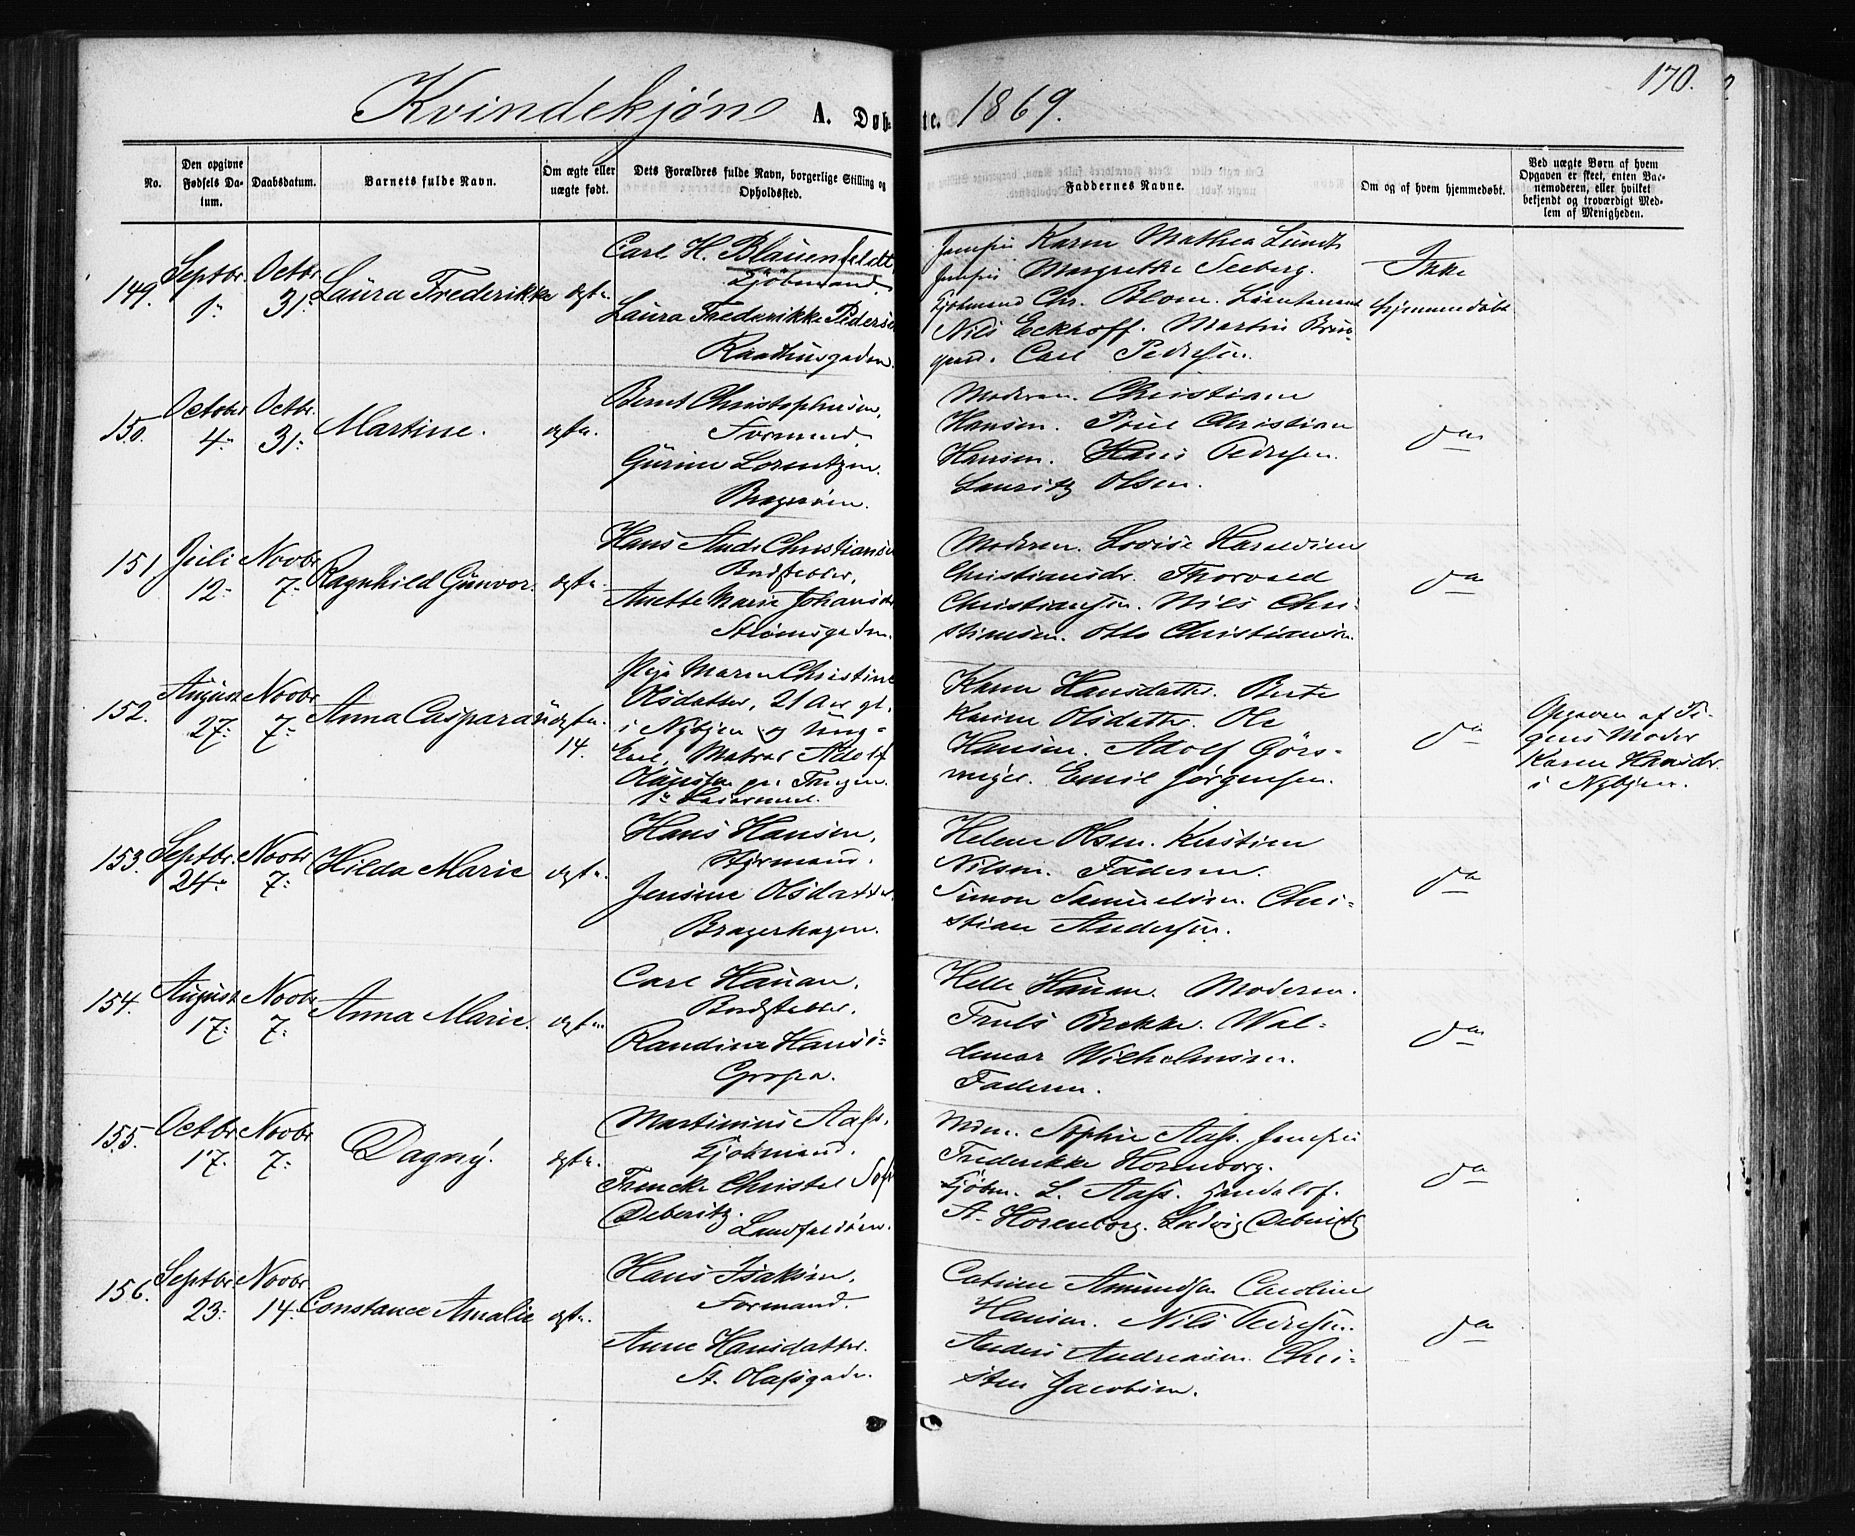 170.
Kvindekjøn A. Døbte. 1869.
No.
Den opgivne Fødsels Datum.
Daabsdatum.
Barnets fulde Navn.
Om ægte eller uægte født.
Dets Forældres fulde Navn, borgerlige Stilling og Opholdssted.
Faddernes Navne.
Om og af hvem hjemmedøbt.
Ved uægte Børn af hvem Opgaven er skeet, enten Barnemoderen, eller hvilket bekjendt og troværdigt Medlem af Menigheden.
149. Septbr. 1. Octbr. 31. Laura Frederikke ægte.
Carl H. Blauenfeldt
Kjøbmand.
Laura Frederikke Peders
Raadhusgaden.
Jomfru Karen Mathea Lund
Jomfru Margrethe Seeberg.
Kjøbmand Chr. Blom. Lieutenant
Nils Eckhoff. Martin Bruu-
gaard. Carl Pedersen.
Ikke
hjemmedøbt
150. October 4. Octbr. 31. Martine. ægte.
Bernt Christophersen,
Formand.
Gurine Lorentzen.
Bragerøen.
Moderen. Christiane
Hansen. Poul Christian
Hansen. Hans Pedersen.
Lauritz Olsen.
do
151 Juli 12. Novbr 7. Ragnhild Gunvor. ægte.
Hans And. Christians
Bødker,
Anette Marie Johansdr
Strømsgaden.
Moderen. Lovise Haraldine
Christiansdr. Thorvald
Christiansen. Nils Chri-
stiansen. Otto Christiansen.
do
152. August 27. Novbr 7. Anna Caspara uægte. 14.
Pige Maren Christine
Olsdatter, 21 Aar gl.
i Nybyen og Ung-
karl, Matros Adolf
Olausen
1ste Leiermaal.
Karen Hansdatter. Berte
Karine Olsdatter. Ole
Hansen. Adolf Görs-
meyer. Emil Jørgensen.
do
Opgaven af Pi-
gens Moder
Karen Hansdr.
i Nybyen.
153. Septbr. 24. Novbr 7. Hilda Marie ægte.
Hans Hansen,
Styrmand.
Jensine Olsdatter
Bragerhagen.
Helene Olsen. Kirstine
Nilsen. Faderen.
Simon Samuelsen. Chri-
stian Andersen.
do
154. August 17. Novbr 7. Anna Marie. ægte
Carl Hauan.
Randine Hans-
Gropa.
Helle Hauan. Moderen.
Truls Brekke. Wal-
demar Wilhelmsen.
Faderen.
do
155. Octbr. 17. Novbr 7. Dagny. ægte.
Martinius Aass.
Kjøbmand.
Francke Christel Sof
Deberitz.
Landfaldøen.
Mdm. Sophie Aass. Jomfru
Frederikke Horneborg.
Kjøbm. L. Aass. Handelsf.
A. Horneborg. Ludvig Deberitz
do
156. Septbr. 23. Novbr 14. Constance Amalie ægte.
Hans Isaksen.
Formand.
Anne Hansdatter.
St. Olafsgaden.
Catrine Amundsen Caroline
Hansen. Nils Pedersen.
Anders Andreasen. Chri-
sten Jacobsen.
do